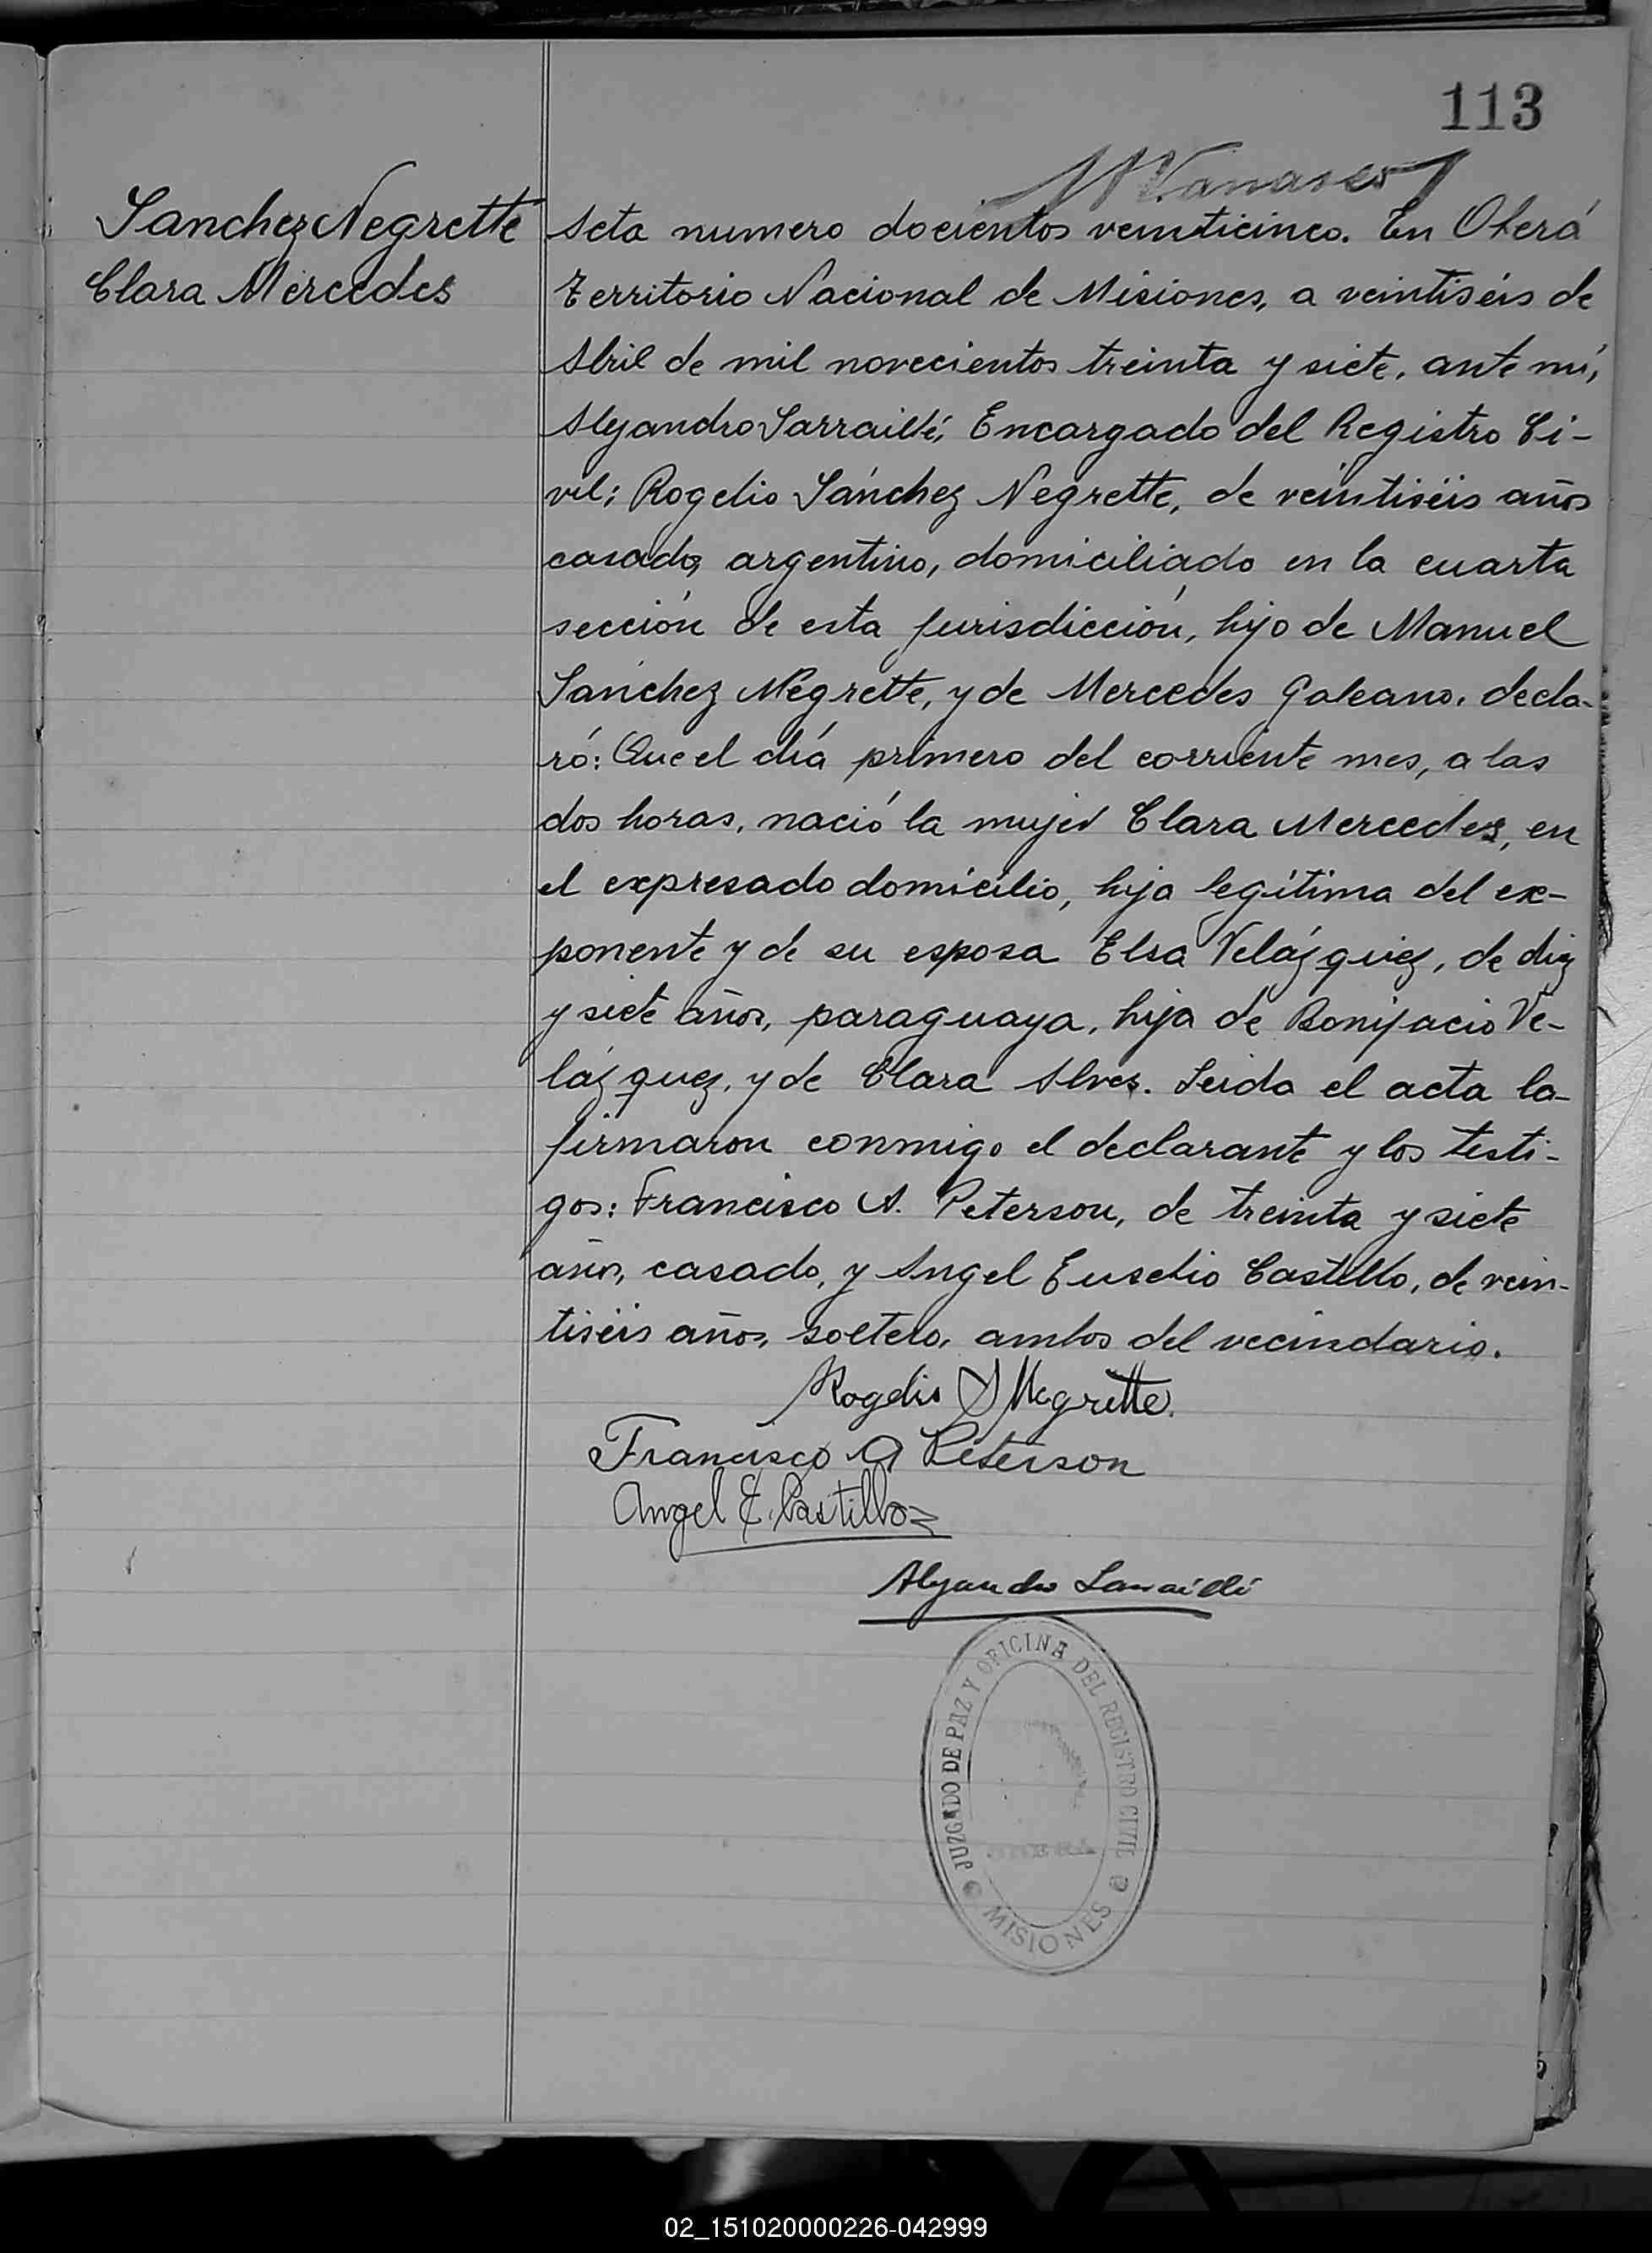 113
Sanchez Negrette
Clara Mercedes
Acta numero docientos veinticinco. En Oberá
Territorio Nacional de Misiones, a veintiséis de
Abril de mil novecientos treinta y siete, ante mí,
Alejandro Sarraillé, Encargado del Registro Ci-
vil; Rogelio Sánchez Negrette, de veintiséis años
casado, argentino, domiciliado en la cuarta
sección de esta jurisdicción, hijo de Manuel
Sánchez Negrette, y de Mercedes Galeano, decla-
ró: Que el día primero del corriente mes, a las
dos horas, nació la mujer Clara Mercedes, en
el expresado domicilio, hija legítima del ex-
ponente y de su esposa Elsa Velázquez, de diez
y siete años, paraguaya, hija de Bonifacio Ve-
lázquez, y de Clara Alves. Leida el acta la
firmaron conmigo el declarante y los testi-
gos: Francisco A. Peterson, de treinta y siete
años, casado, y Angel Eusebio Castillo, de vein-
tiséis años, soltero, ambos del vecindario.
Rogelio S Negrette.
Francisco A Peterson
Angel E. Castillo
Alejandro Sarraillé
JUZGADO DE PAZ Y OFICINA DEL REGISTRO CIVIL
MISIONES
02_151020000226-042999